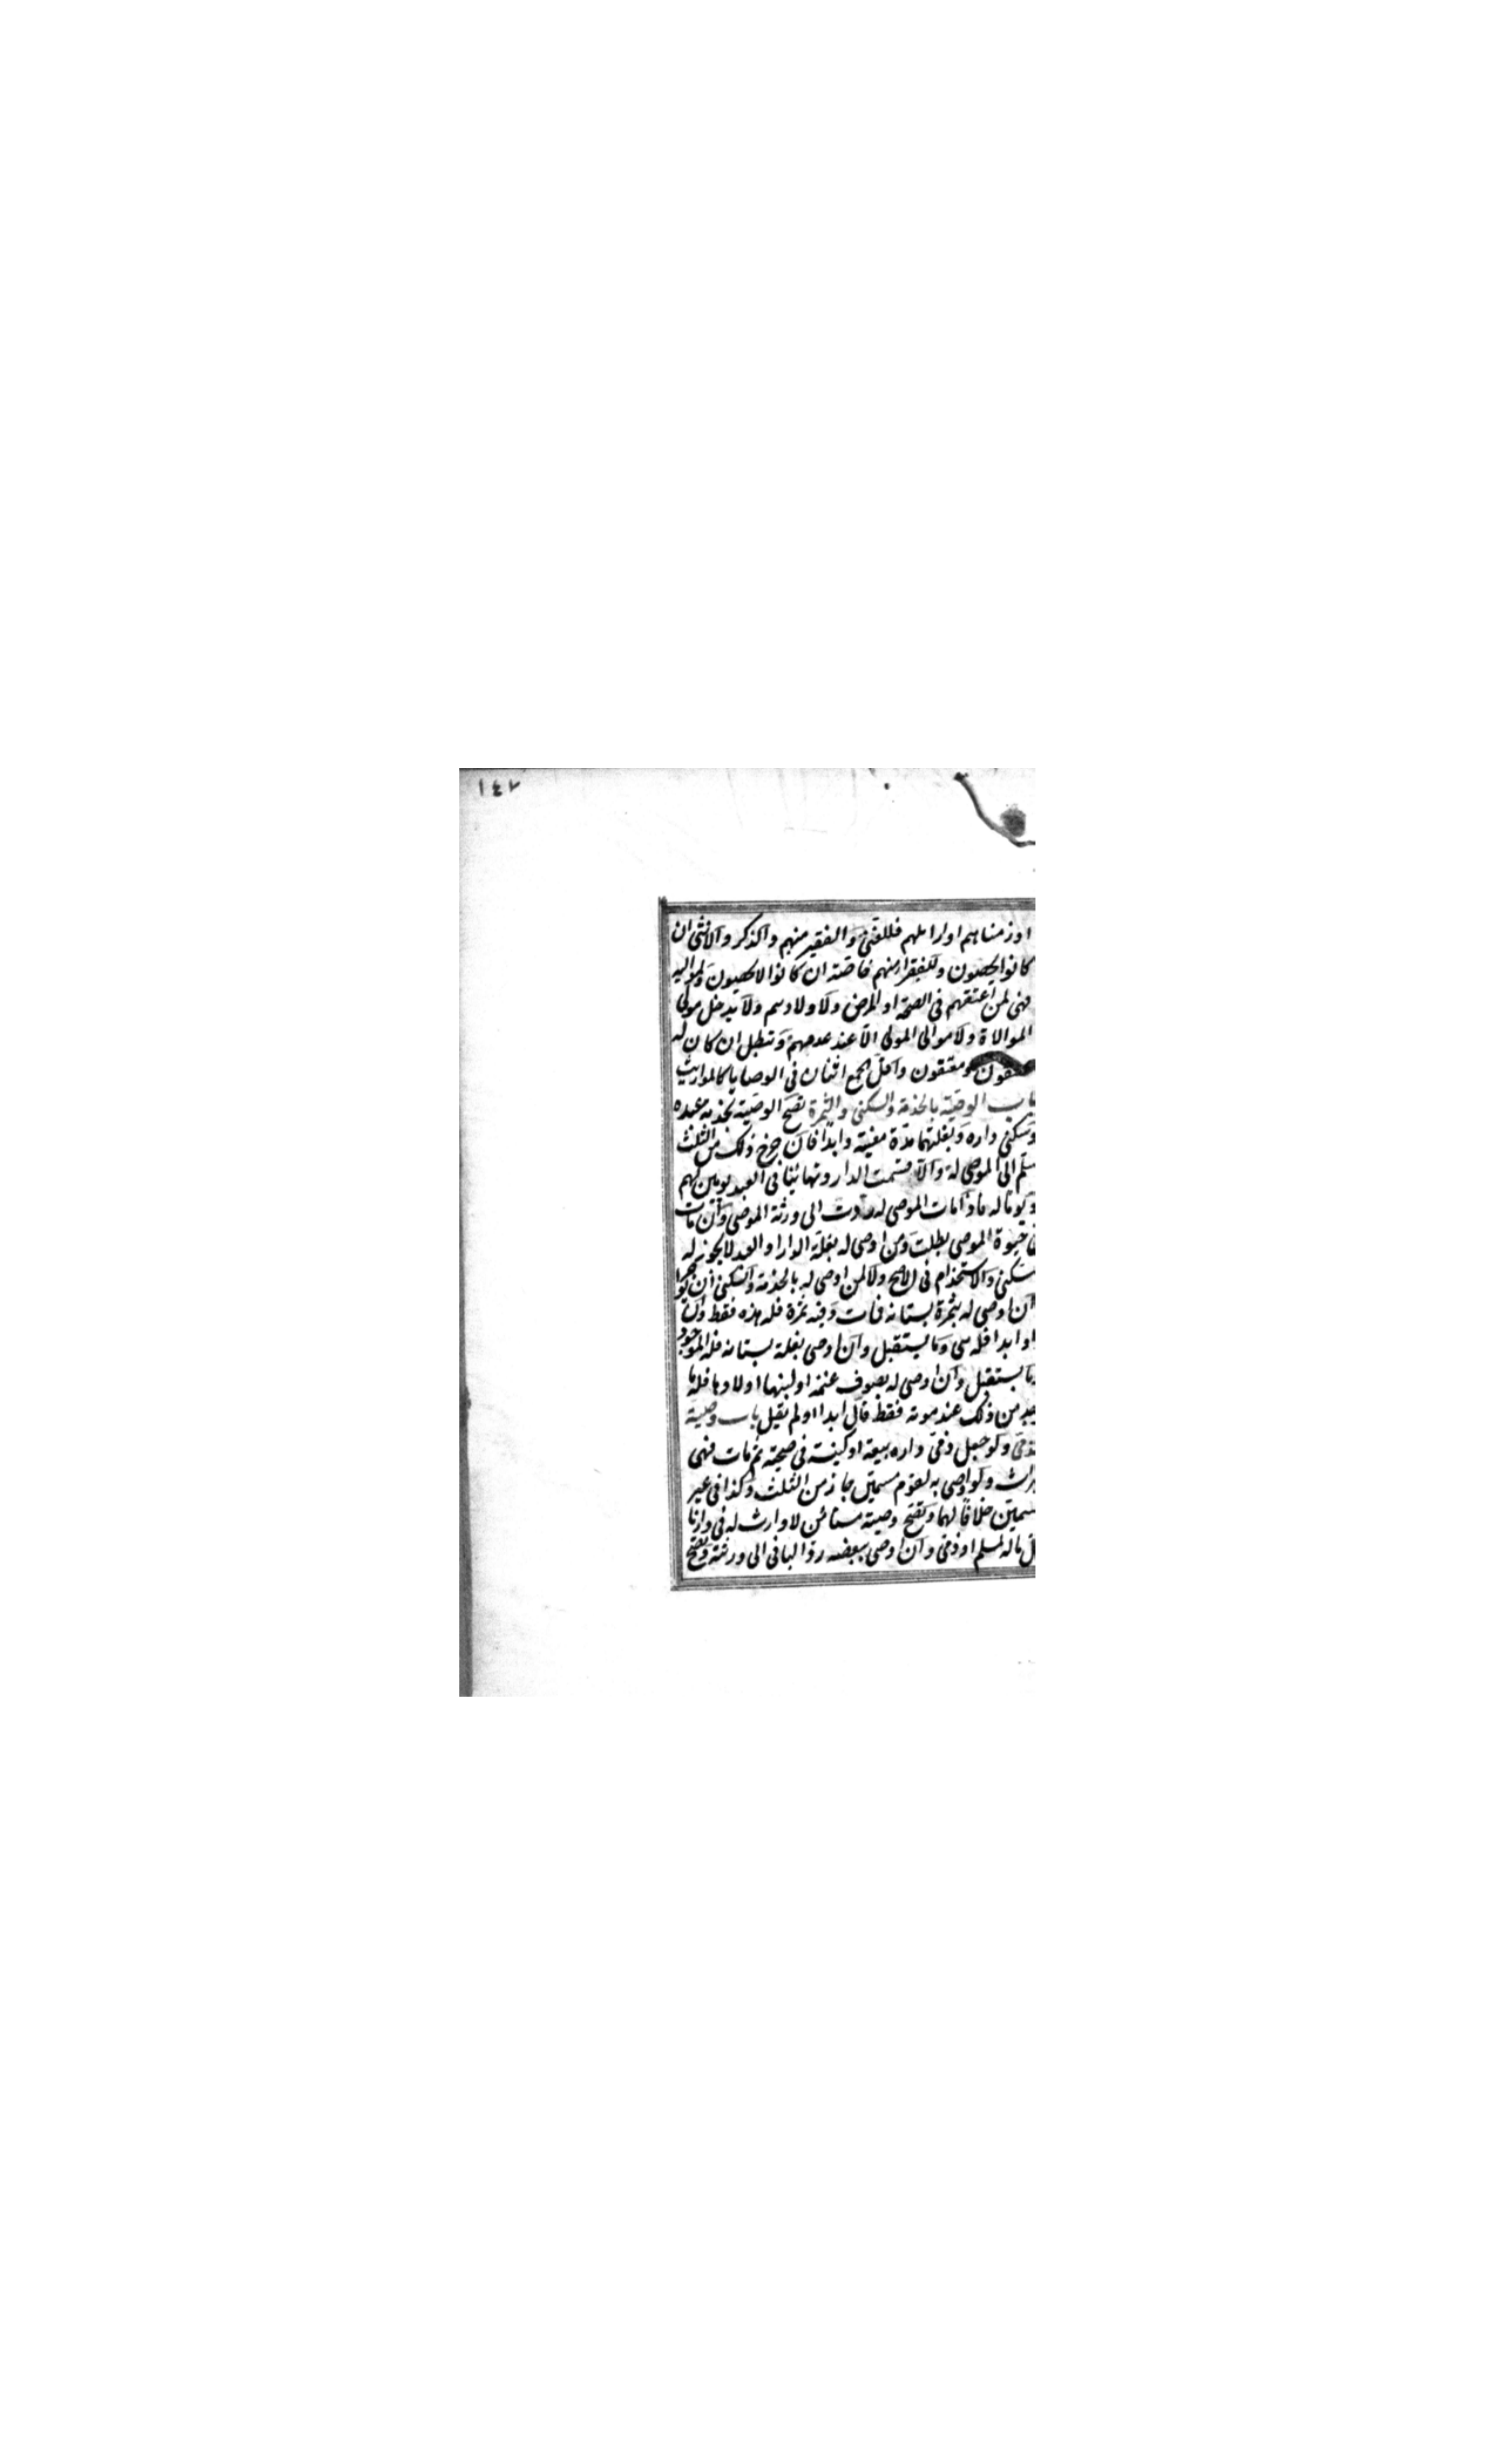 ١٤٧
او زمناهم او اراملهم فللغنى والفقير منهم والذكر والانثى ان
كانوا يحصون وللفقراء منهم خاصة ان كانوا لا يحصون ولمواليه
فهى لمن اعتقهم فى الصحة او المرض ولاولادهم ولا يدخل مولى
الموالاة ولا موالى المولى الا عند عدمهم وتبطل ان كان له
معتقون ومعتقون واقل الجمع اثنان فى الوصايا كالمواريث
باب الوصية بالخدمة والسكنى والثمرة تصح الوصية بخدمة عبده
وسكنى داره وبغلتهما مدة معينة وابدا فان خرج ذلك من الثلث
سلم الى الموصى له والا قسمت الدار وتهائيا فى العبد يومين لهم
ويوما له فاذا مات الموصى له ردت الى ورثة الموصى وان مات
فى حيوة الموصى بطلت ومن اوصى له بغلة الدار او العبد لا يجوز له
سكنى والاستخدام فى الاصح ولا لمن اوصى له بالخدمة والسكنى ان يواجر
ان اوصى له بثمرة بستانه فمات وفيه ثمرة فله هذه فقط وان
اد ابدا فله هى وما يستقبل وان اوصى بغلة بستانه فله الموجود
ما يستقبل وان اوصى له بصوف غنمه او لبنها او اولادها فله ما
جد من ذلك عند موته فقط قال ابدا او لم يقل باب وصية
ذمى ولو جعل ذمى داره بيعة او كنيسة فى صحته ثم مات فهى
يراث ولو اوصى به لقوم مسمين جاز من الثلث وكذا فى غير
سمين خلافا لهما وتصح وصية مستأمن لا وارث له فى دارنا
ل ماله لمسلم او ذمى وان اوصى ببعضه رد الباقى الى ورثته وتصح